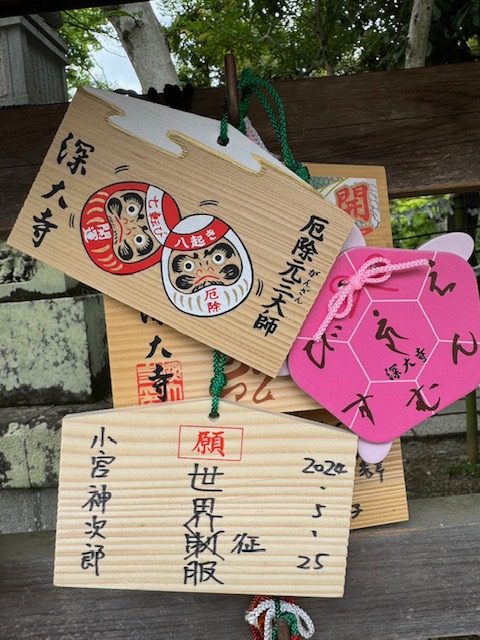 深大寺
七転び
八起き
開運
厄除
厄除元三大師
がんざん
開
大寺
えんむすび
深大寺
願
2024
.5
.25
世界制服
征
小宮神次郎